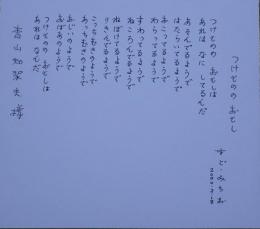 つけものの おもし
まど・みちお
つけものの おもしは
あれは なに してるんだ
あそんでるようで
はたらいてるようで
おこってるようで
わらってるようで
すわってるようで
ねころんでるようで
ねぼけてるようで
りきんでるようで
こっちむきのようで
あっちむきのようで
おじいのようで
おばあのようで
つけものの おもしは
あれは なんだ